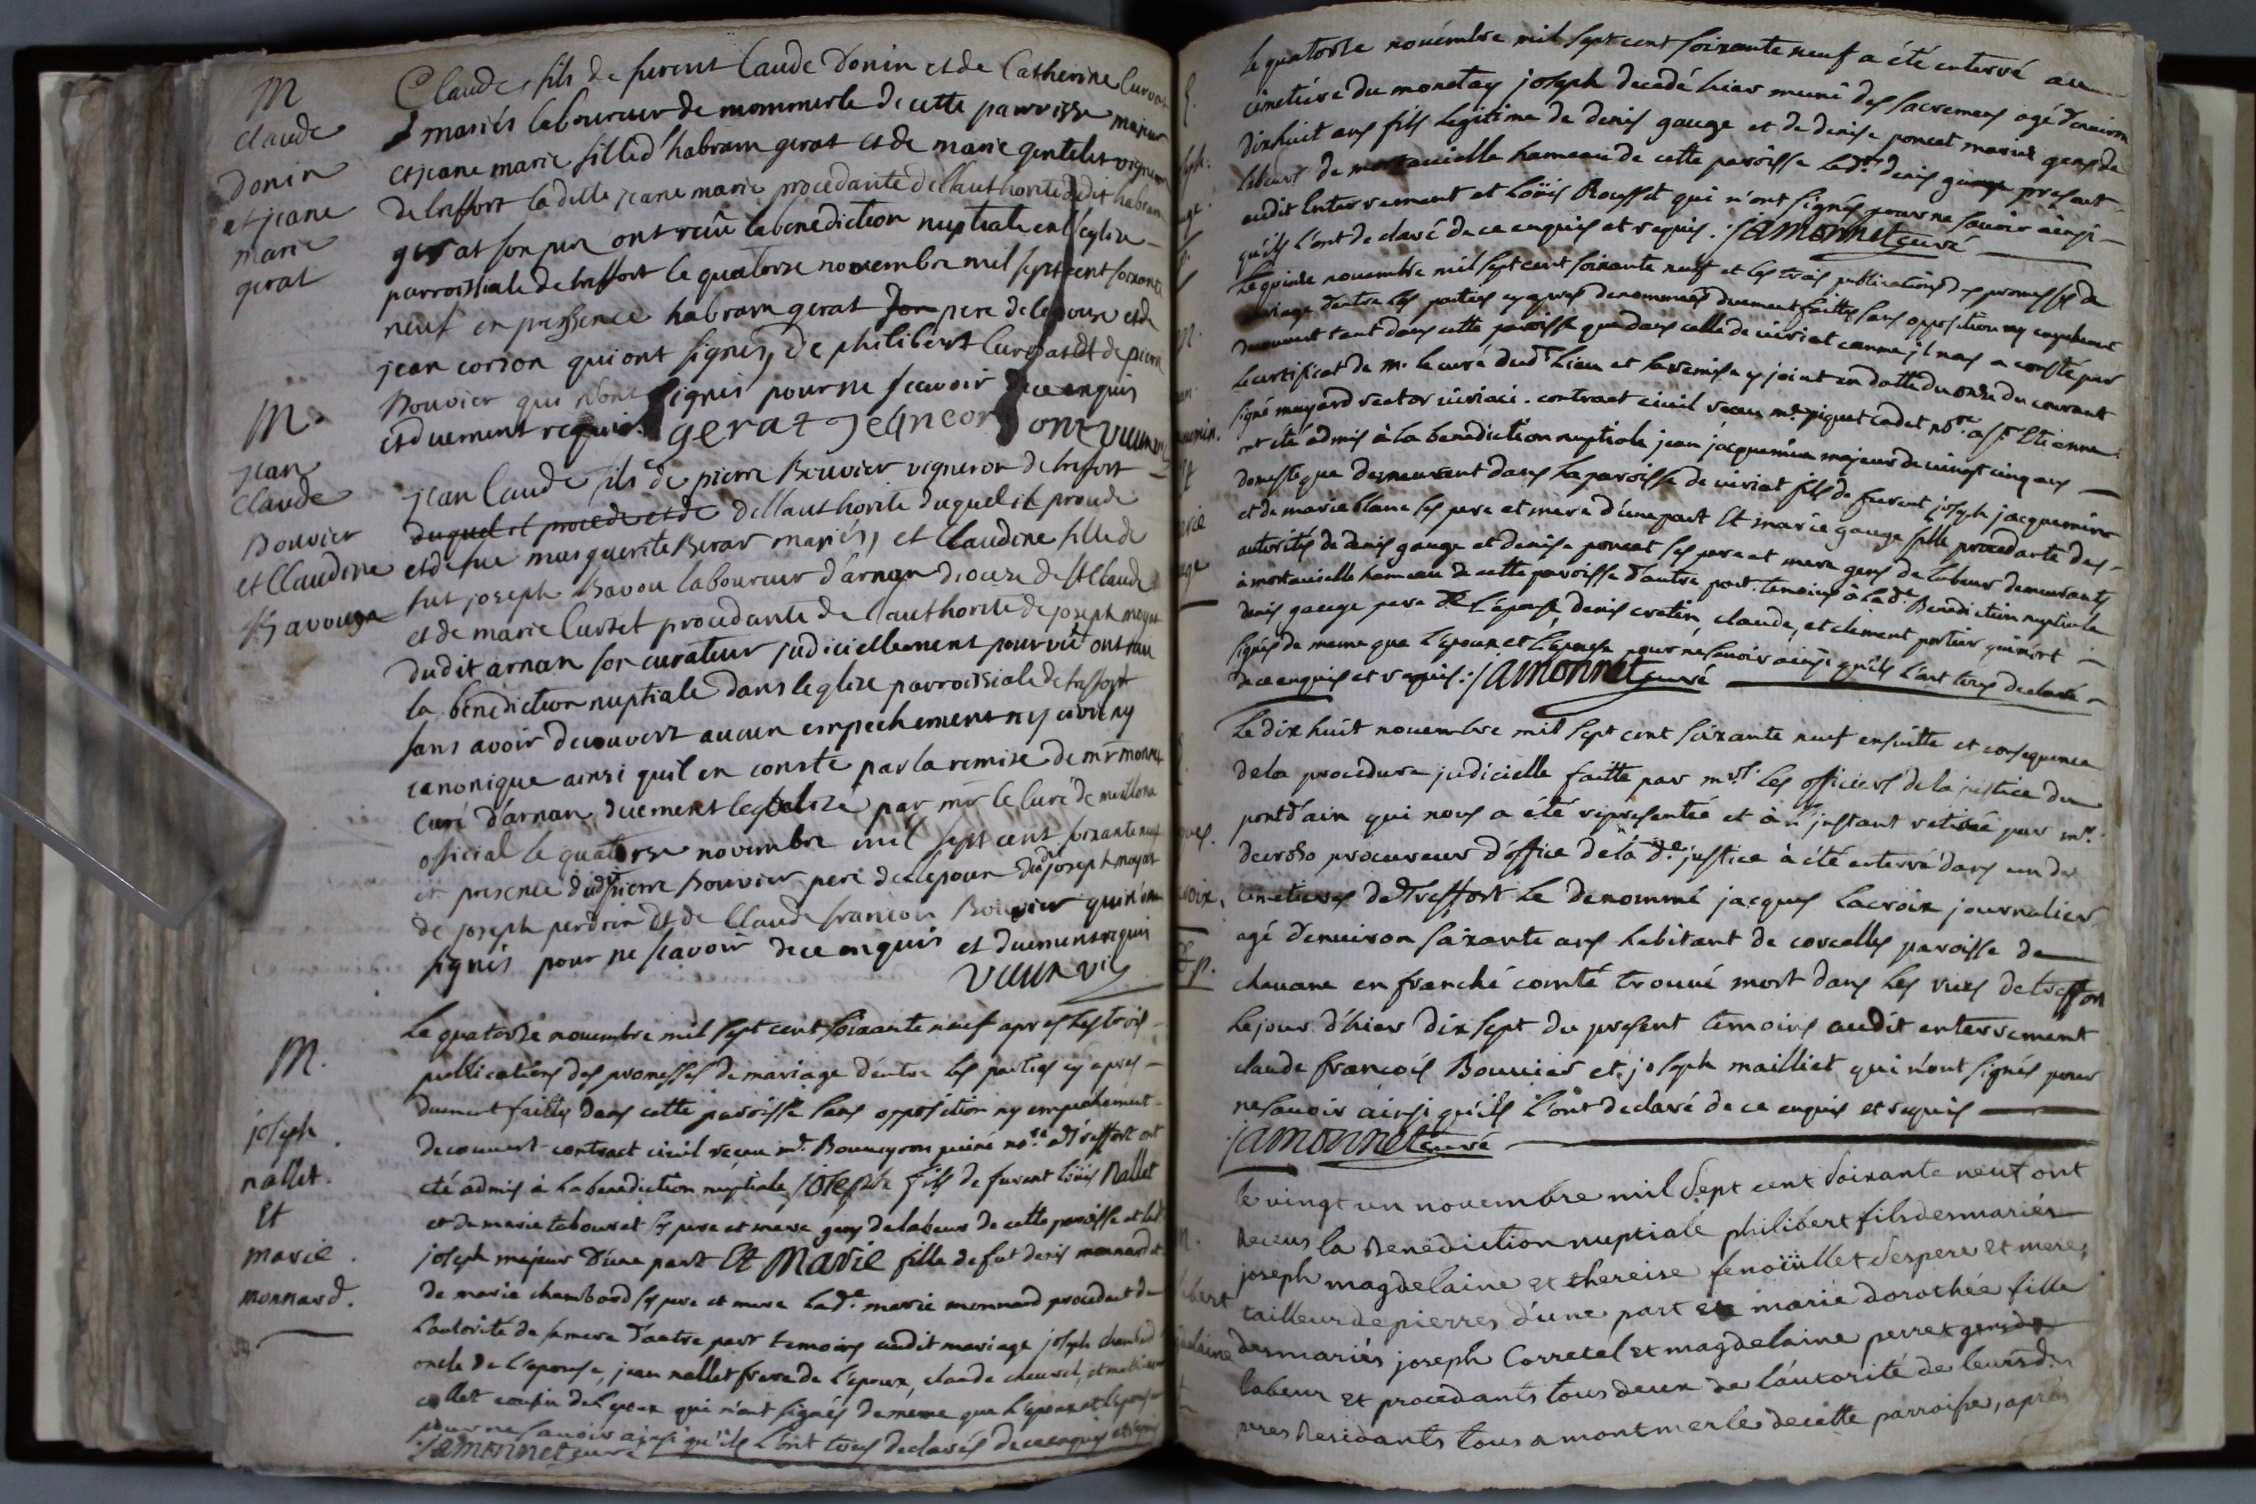 M
claude
donin
et jeane
marie
gerat
Claude, fils de furent Claude Donin et de Catherine Curvat
mariés laboureur de mommerle de cette parroisse majeur
et jeane marie fille d'habram gerat et de marie gentelet vigneron
de treffort ladille jeane marie procedante de l'authorité dudit habram
gerat son pere ont reçû la benediction nuptiale en l'eglise
parroissiale de treffort le quatorze novembre mil sept cent soixante
neuf en presence habram gerat son pere de l'epouse et de
jean corson qui ont signés, de philibert Curvat et de pierre
Bouvier qui n'ont signés pour ne scavoir de ce enquis
et duement requis. gerat jean corsont
M.
jean
Claude
Bouvier
et Claudine
Bavouze
jean Claude fils de pierre Bouvier vigneron de trefort
duquel il procede et de de l'authorite duquel il procede
et de fue marguerite Berar mariés, et Claudine fille de
fut joseph Bavou laboureur d'arnan diocese de St Claude
et de marie Curtet procedante de l'authorite de joseph moyat
dudit arnan son curateur judiciellement pourvû ont reçu
la benediction nuptiale dans leglise parroissiale de treffort
sans avoir decouvert aucun empechement ny civil ny
canonique ainsi quil en conste par la remise de mr monnet
curé d'arnan duement legalisé par mr le curé de meillona
official le quatorze novembre mil sept cent soixante neuf
en presence dudit pierre Bouvier pere de l'epoux dudit joseph moyat
de joseph perdrix et de Claude francois Bouvier qui n'ont
signés pour ne scavoir de ce enquis et duement requis
M.
joseph
nallet.
Et
marie
monnard.
Le quatorze novembre mil sept cent soixante neuf apres les trois
publications des promesses de mariage d'entre les parties cy apres
duement faittes dans cette paroisse sans opposition ny empechement
decouvert contract civil receu me. Bonneyron puiné nore. a treffort ont
été admis à la benediction nuptiale joseph fils de furent Loüis Nallet
et de marie tabouret ses pere et mere gens de labeur de cette paroisse et led.
joseph majeur d'une part Et Marie fille de fut denis monnard et
de marie chambard ses pere et mere lade. marie monnard procedant de
l'autorité de sa mere d'autre part temoins audit mariage joseph chambard
oncle de l'epouse, jean nallet frere de l'epoux, claude
nallet cousin de l'epoux qui n'ont signés de meme que l'epoux et l'epouse
pour ne savoir ainsi qu'ils l'ont tous declarés de ce enquis et requis
jamonnet curé
Le quatorze novembre mil sept cent soixante neuf a été enterré au
cimetiere du monetay joseph decedé hier muni des sacremens agé d'environ
dixhuit ans fils legitime de denis gauge et de denise poncet mariés gens de
labeur de montacielle hameau de cette paroisse led. denis gauge present
audit enterrement et Loüis Rousset qui n'ont signés pour ne savoir ainsi
qu'ils l'ont declaré de ce enquis et requis. jamonnet curé
Le quinze novembre mil sept cent soixante neuf et les trois publications des promesses de
mariage d'entre les parties cy apres denommées duement faittes sans opposition ny empechement
decouvert tant dans cette paroisse que dans celle de viriat comme il nous a consté par
le certificat de mr. le curé dud. Lieu et la remise cy joint en datte du onze du courant
signé mayard rector viriaci. contract civil receu me. piquet cadet nore. a St. Etienne.
ont été admis à la benediction nuptiale jean jacquemin majeur de vingt cinq ans
domestique demeurant dans la paroisse de viriat fils de furent joseph jacquemin
et de marie blanc ses pere et mere d'une part Et marie gauge fille procedante des
autorités de denis gauge et denise poncet ses pere et mere gens de labeur demeurants
à montacielle hameau de cette paroisse d'autre part. temoins à lade. Benediction nuptiale
denis gauge pere de l'epouse denis cretin, claude, et climent portier qui n'ont
signés de meme que l'epoux et l'epouse pour ne savoir ainsi qu'ils l'ont tous declaré
de ce enquis et requis. jamonnet curé
Le dix huit novembre mil sept cent soixante neuf ensuitte et consequence
de la procedure judicielle faitte par mrs. les officiers de la justice du
pont d'ain qui nous a été representée et à l'instant retirée par mr.
decroso procureur d'office de la de. justice à été enterré dans un des
cimetieres de Treffort le denommé jacques Lacroix journalier
agé d'environ soixante ans habitant de corcelles paroisse de
chavane en franche comté trouvé mort dans les rues de treffort
le jour d'hier dix sept du present temoins audit enterrement
claude françois Bouvier et joseph mailliet qui n'ont signés pour
ne savoir ainsi qu'ils l'ont declaré de ce enquis et requis
jamonnet curé
le vingt un novembre mil sept cent soixante neuf ont
receus la Benediction nuptiale philibert fils des mariés
joseph magdelaine et thereise fenoüillet ses pere et mere,
tailleur de pierres d'une part et marie dorothée fille
des mariés joseph Corretel et magdelaine perret gens de
labeur et procedants tous deux de l'autorité de leursd.
peres Residants tous a montmerle de cette parroisse, après